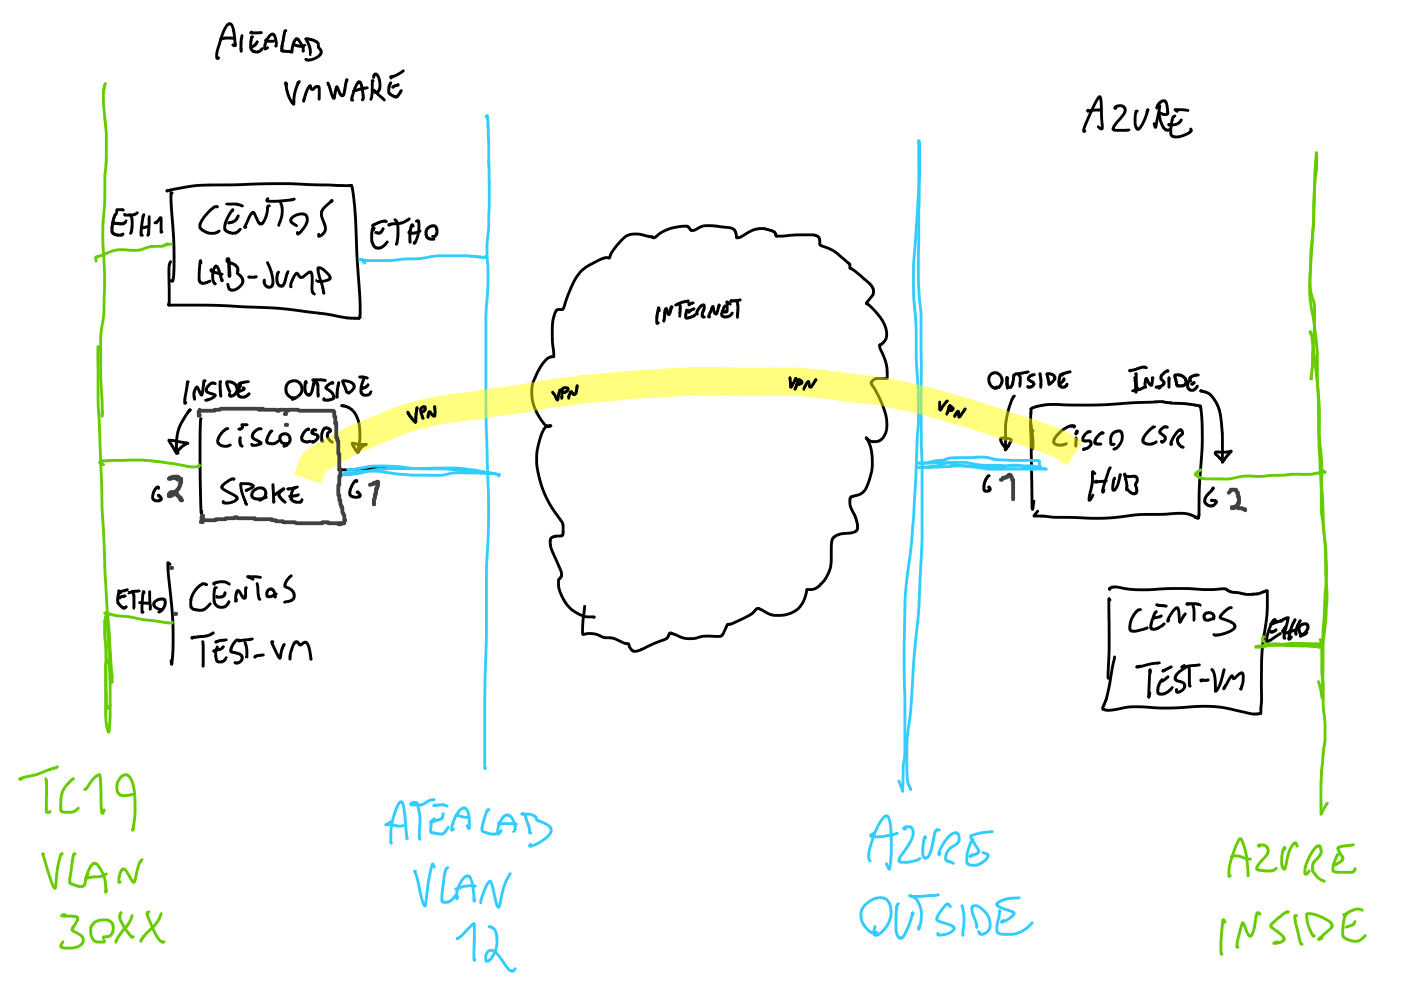 ATEALAB
VMWARE
AZURE
ETH1
CENTOS
LAB-JUMP
ETH0
INTERNET
INSIDE
OUTSIDE
CISCO CSR
SPOKE
G2
G1
VPN
VPN
VPN
VPN
OUTSIDE
INSIDE
CISCO CSR
HUB
G1
G2
ETH0
CENTOS
TEST-VM
CENTOS
TEST-VM
ETH0
TC19
VLAN
30XX
ATEALAB
VLAN
12
AZURE
OUTSIDE
AZURE
INSIDE